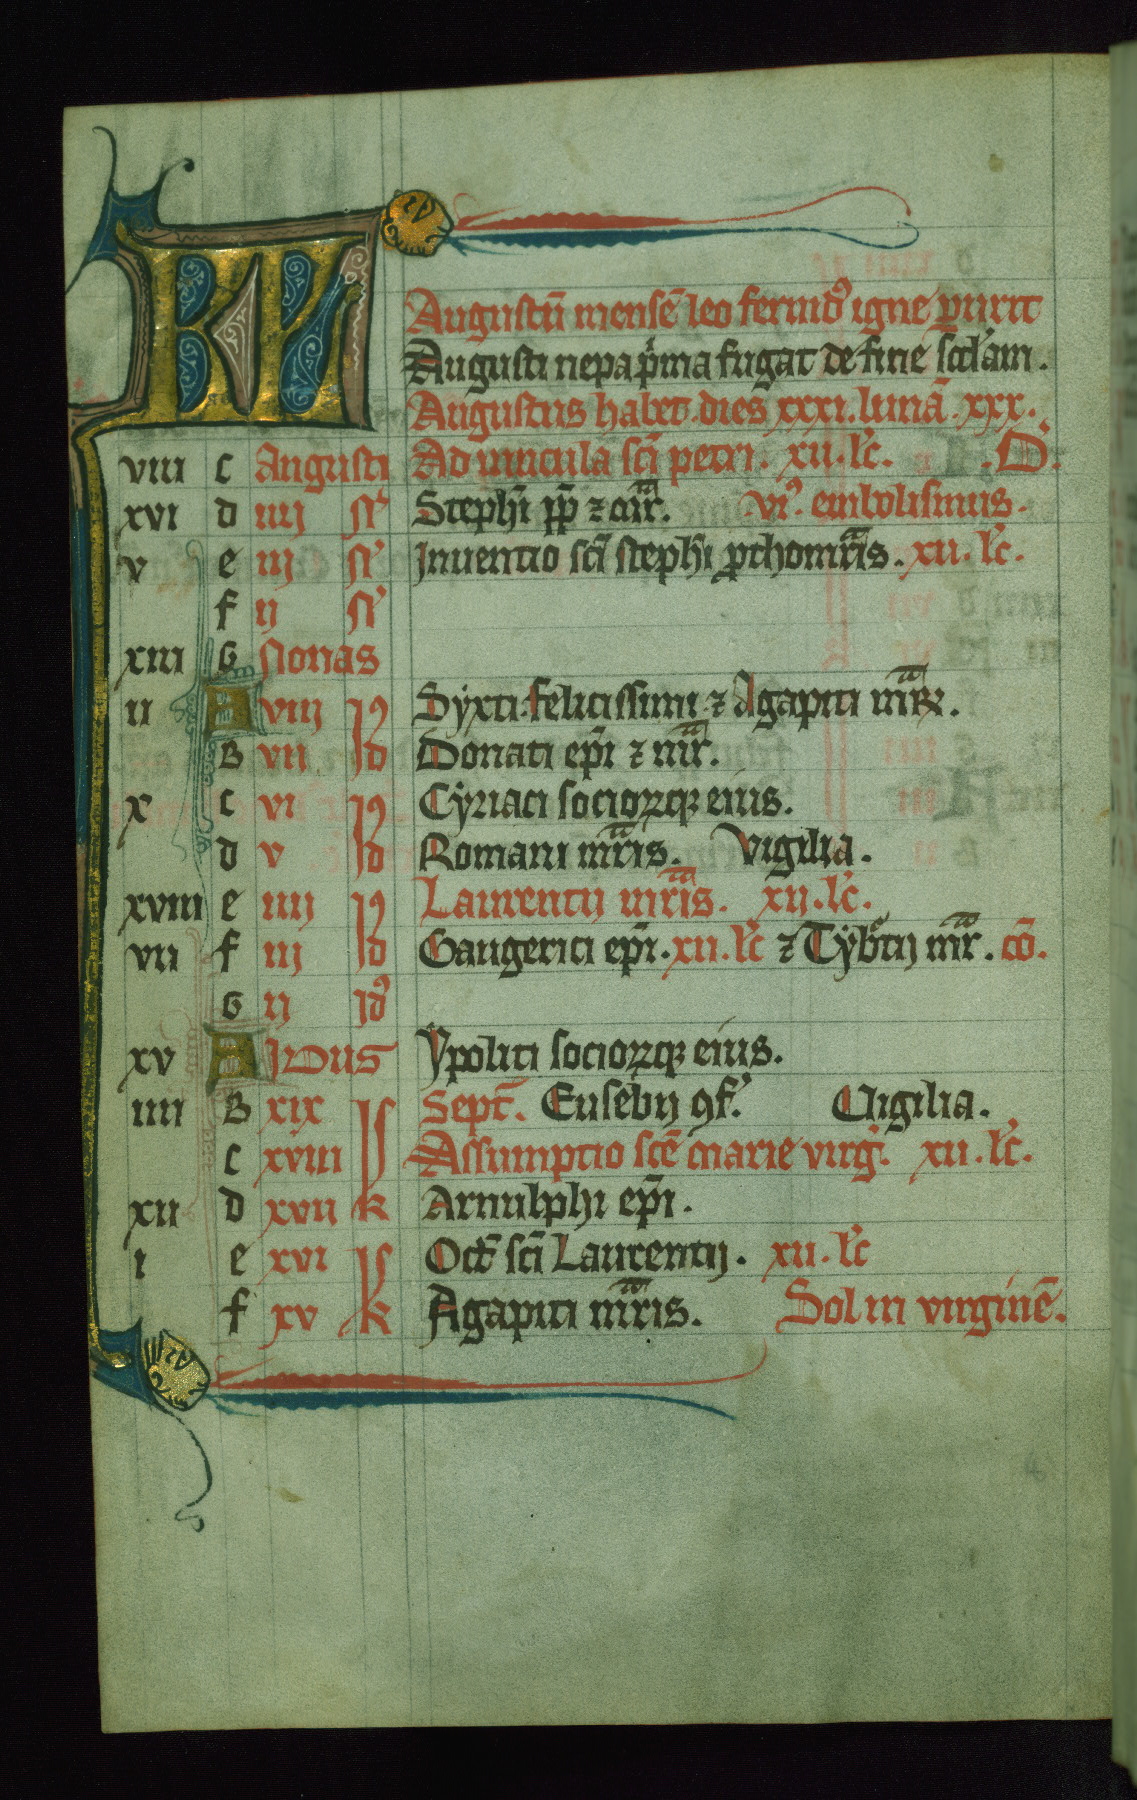 KL
Augustū mensē leo feruidꝰ igne p̲urit
Augusti nepa p̾ma fugat de fine scd̾am .
Augustus habet . dies xxxi . lunā . xxx .
viii c Augusti Ad uincula sc̄i petri . xii . lc̄ . . D .
xvi d iiij Nꝰ Steph̄i pp̄ ⁊ mr̄ . viꝰ . embolismus .
v e iij Nꝰ Inuentio sc̄i steph̄i ꝓthomr̄is . xii . lc̄ .
f ij Nꝰ
xiii G Nonas
ii A viij Id Syxti . felicissimi ⁊ Agapiti mr̄ꝝ .
B vii Id Donati ep̄i ⁊ mr̄ .
x c vi Id Cyriaci sociorꝝqꝫ eius .
d v Id Romani mr̄is . Vigilia .
xviii e iiij Id Laurentij mr̄is . xij . lc̄ .
vii f iij Id Gaugerici ep̄i . xii . lc̄ ⁊ Tyb̾tij mr̄ . cō .
G ij Idꝰ
xv A Idus Ypoliti sociorꝝqꝫ eius .
iiii B xix k Sept̄ . Eusebij ꝯf̾ . Vigilia .
c xviii k Assumptio sc̄e marie virg̾ . xii . lc̄ .
xii d xvii k Arnulphi ep̄i .
i e xvi k Oct̄ sc̄i Laurentij . xii . lc̄
f xv k Agapiti mr̄is . Sol in virginē .